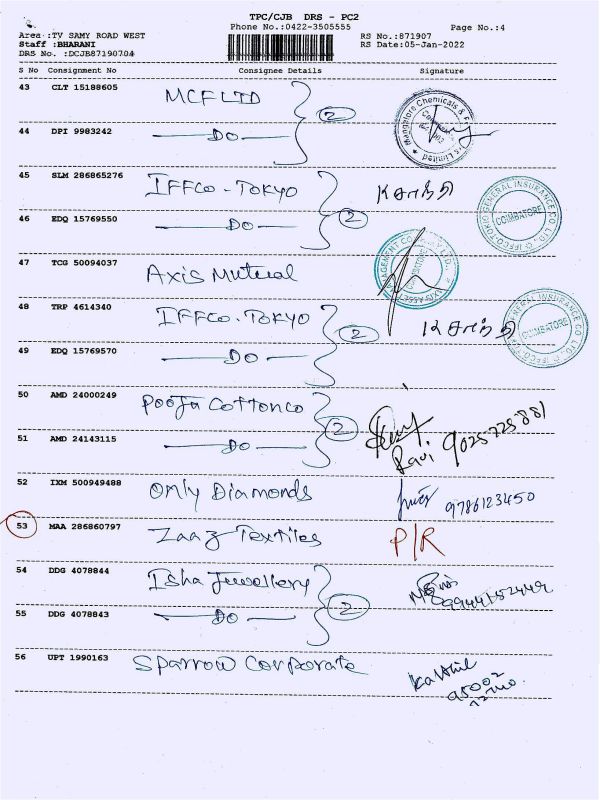 TPC/CJB DRS - PC2
Phone No.:0422-3505555 Page No.:4
Area :TV SAMY ROAD WEST RS No.:871907
Staff :BHARANI RS Date:05-Jan-2022
DRS No. :DCJB87190704
S No Consignment No Consignee Details Signature
43 CLT 15188605 MCF LTD 2
Mangalore Chemicals &
Limited
44 DPI 9983242 — DO —
45 SLM 286865276 IFFCO - TOKYO க சாந்தி
GENERAL INSURANCE CO. LTD. IFFCO-TOKIO
COIMBATORE
46 EDQ 15769550 — DO — 2
47 TCG 50094037 Axis Mutual
48 TRP 4614340 IFFCO - TOKYO 2 க சாந்தி
GENERAL INSURANCE CO. LTD. IFFCO-TOKIO
COIMBATORE
49 EDQ 15769570 — DO —
50 AMD 24000249 Pooja Cottonco 2
Ravi 9025725881
51 AMD 24143115 — DO —
52 IXM 500949488 Only Diamonds 9786123450
53 MAA 286860797 Zaaz Textiles P/R
54 DDG 4078844 Isha Jewellery 2
55 DDG 4078843 — DO —
56 UPT 1990163 Sparrow Corporate